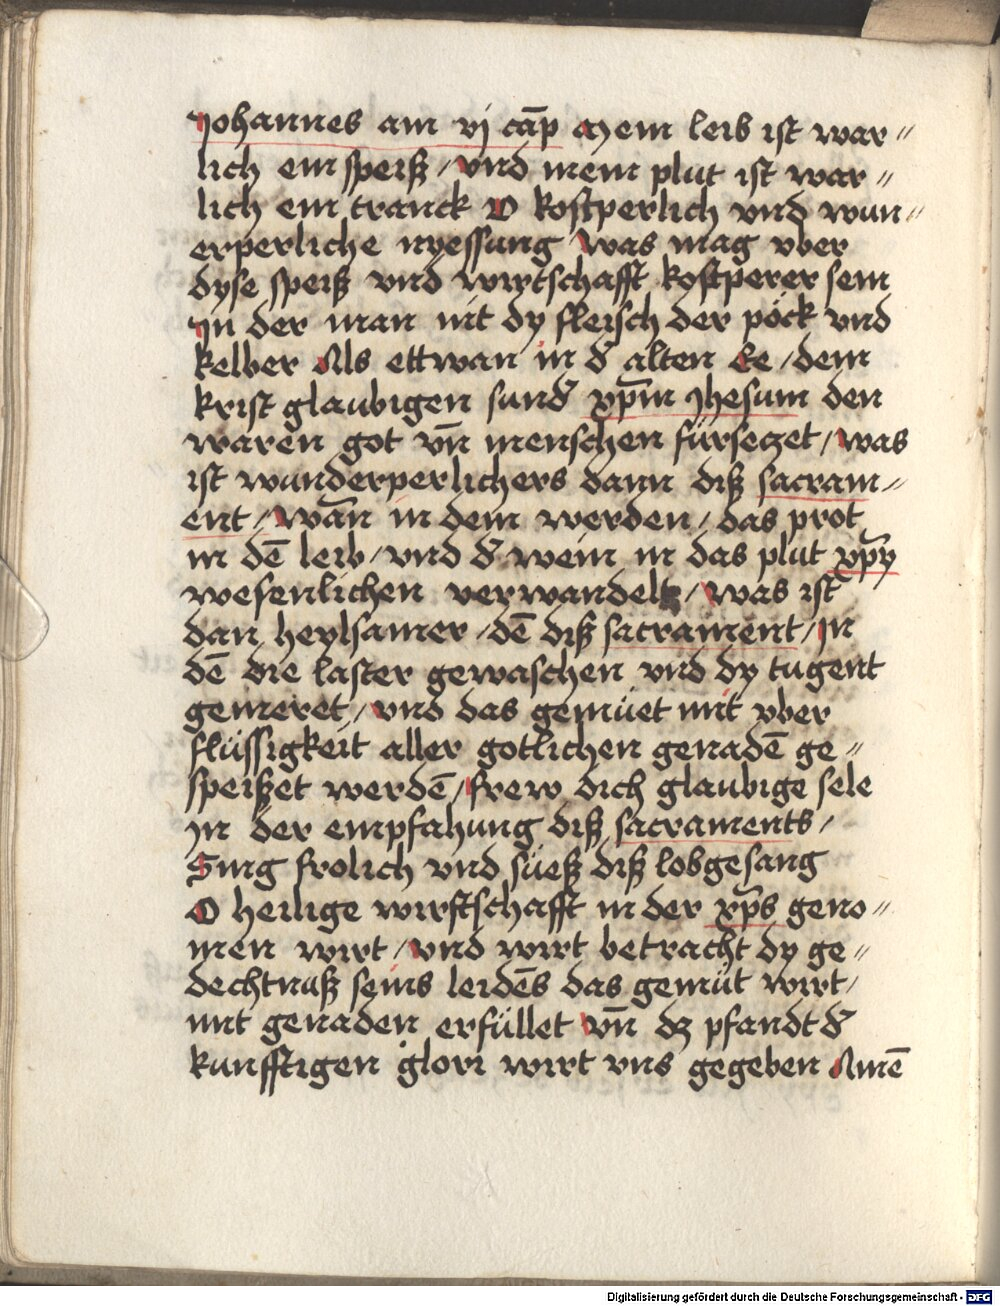 Johannes am vj cāp Mein leib ist war〃
lich ein speiß / vnd mein plut ist war〃
lich ein tranck O kostperlich vnd wun〃
erperliche nyessung Was mag vber
dyse speiß vnd wirtschafft kostperer sein
Jn der man nit dy fleisch der pöck vnd
kelber Als ettwan in d̄ alten Ee / dem
krist glaubigen sund̄ xp̄m Jhesum den
waren got vn̄ menschen fürseczet / was
ist wunderperlichers dann diß sacram〃
ent / Wān in dem werden / das prot
in dē leib / vnd d̄ wein in das plut xp̄y
wesenlichen verwandelt / Was ist
dan heylsamer / dē diß sacrament / Jn
dē die laster gewaschen vnd dy tugent
gemeret / vnd das gemüet mit vber
flüssigkeit aller gotlichen genadē ge〃
speißet werdē / frew dich glaubige sele
Jn der empfahung diß sacraments /
Sing frolich vnd süeß diß lobgesang
O heilige wirstschafft in der xp̄s geno〃
men wirt / vnd wirt betracht dy ge〃
dechtnuß seins leidēs das gemüt wirt /
mit genaden erfüllet vn̄ dz pfandt d̄
kunfftigen glori wirt vns gegeben Amē
Digitalisierung gefördert durch die Deutsche Forschungsgemeinschaft - DFG